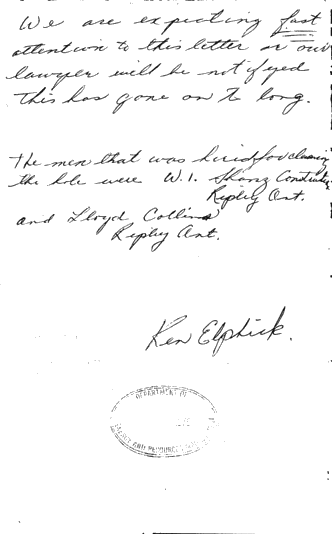 We are expecting fast
attention to this letter or our
lawyer will be notifyed
This has gone on to long.
The men that was hired for cleaning
the hole were W.I. Construction
Ripley Ont.
and Lloyd Collins
Ripley Ont.
Ken Elphick.
DEPARTMENT OF
AND RESOURCES